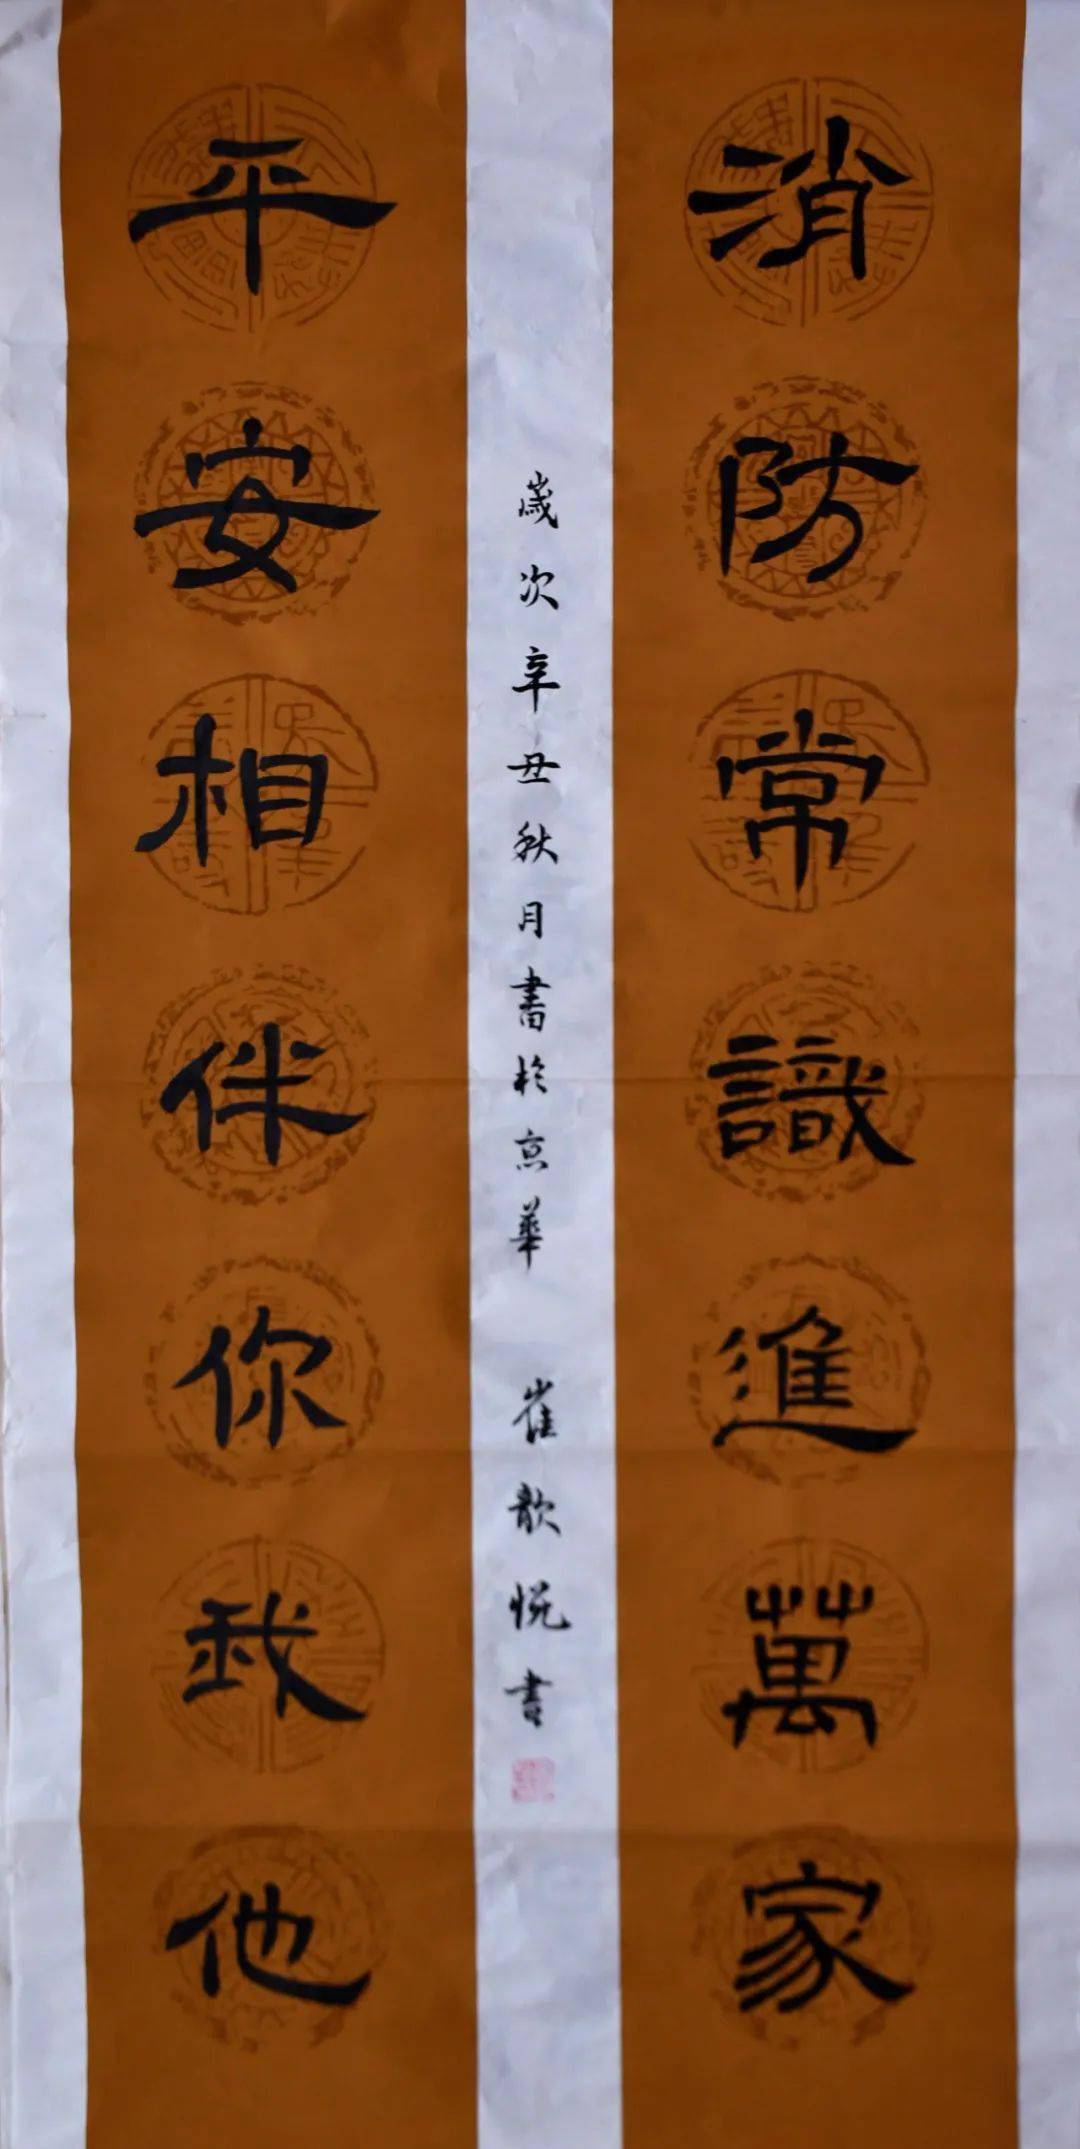 消防常識進萬家
歲次辛丑秋月書於京華 崔歆悦書
平安相伴你我他